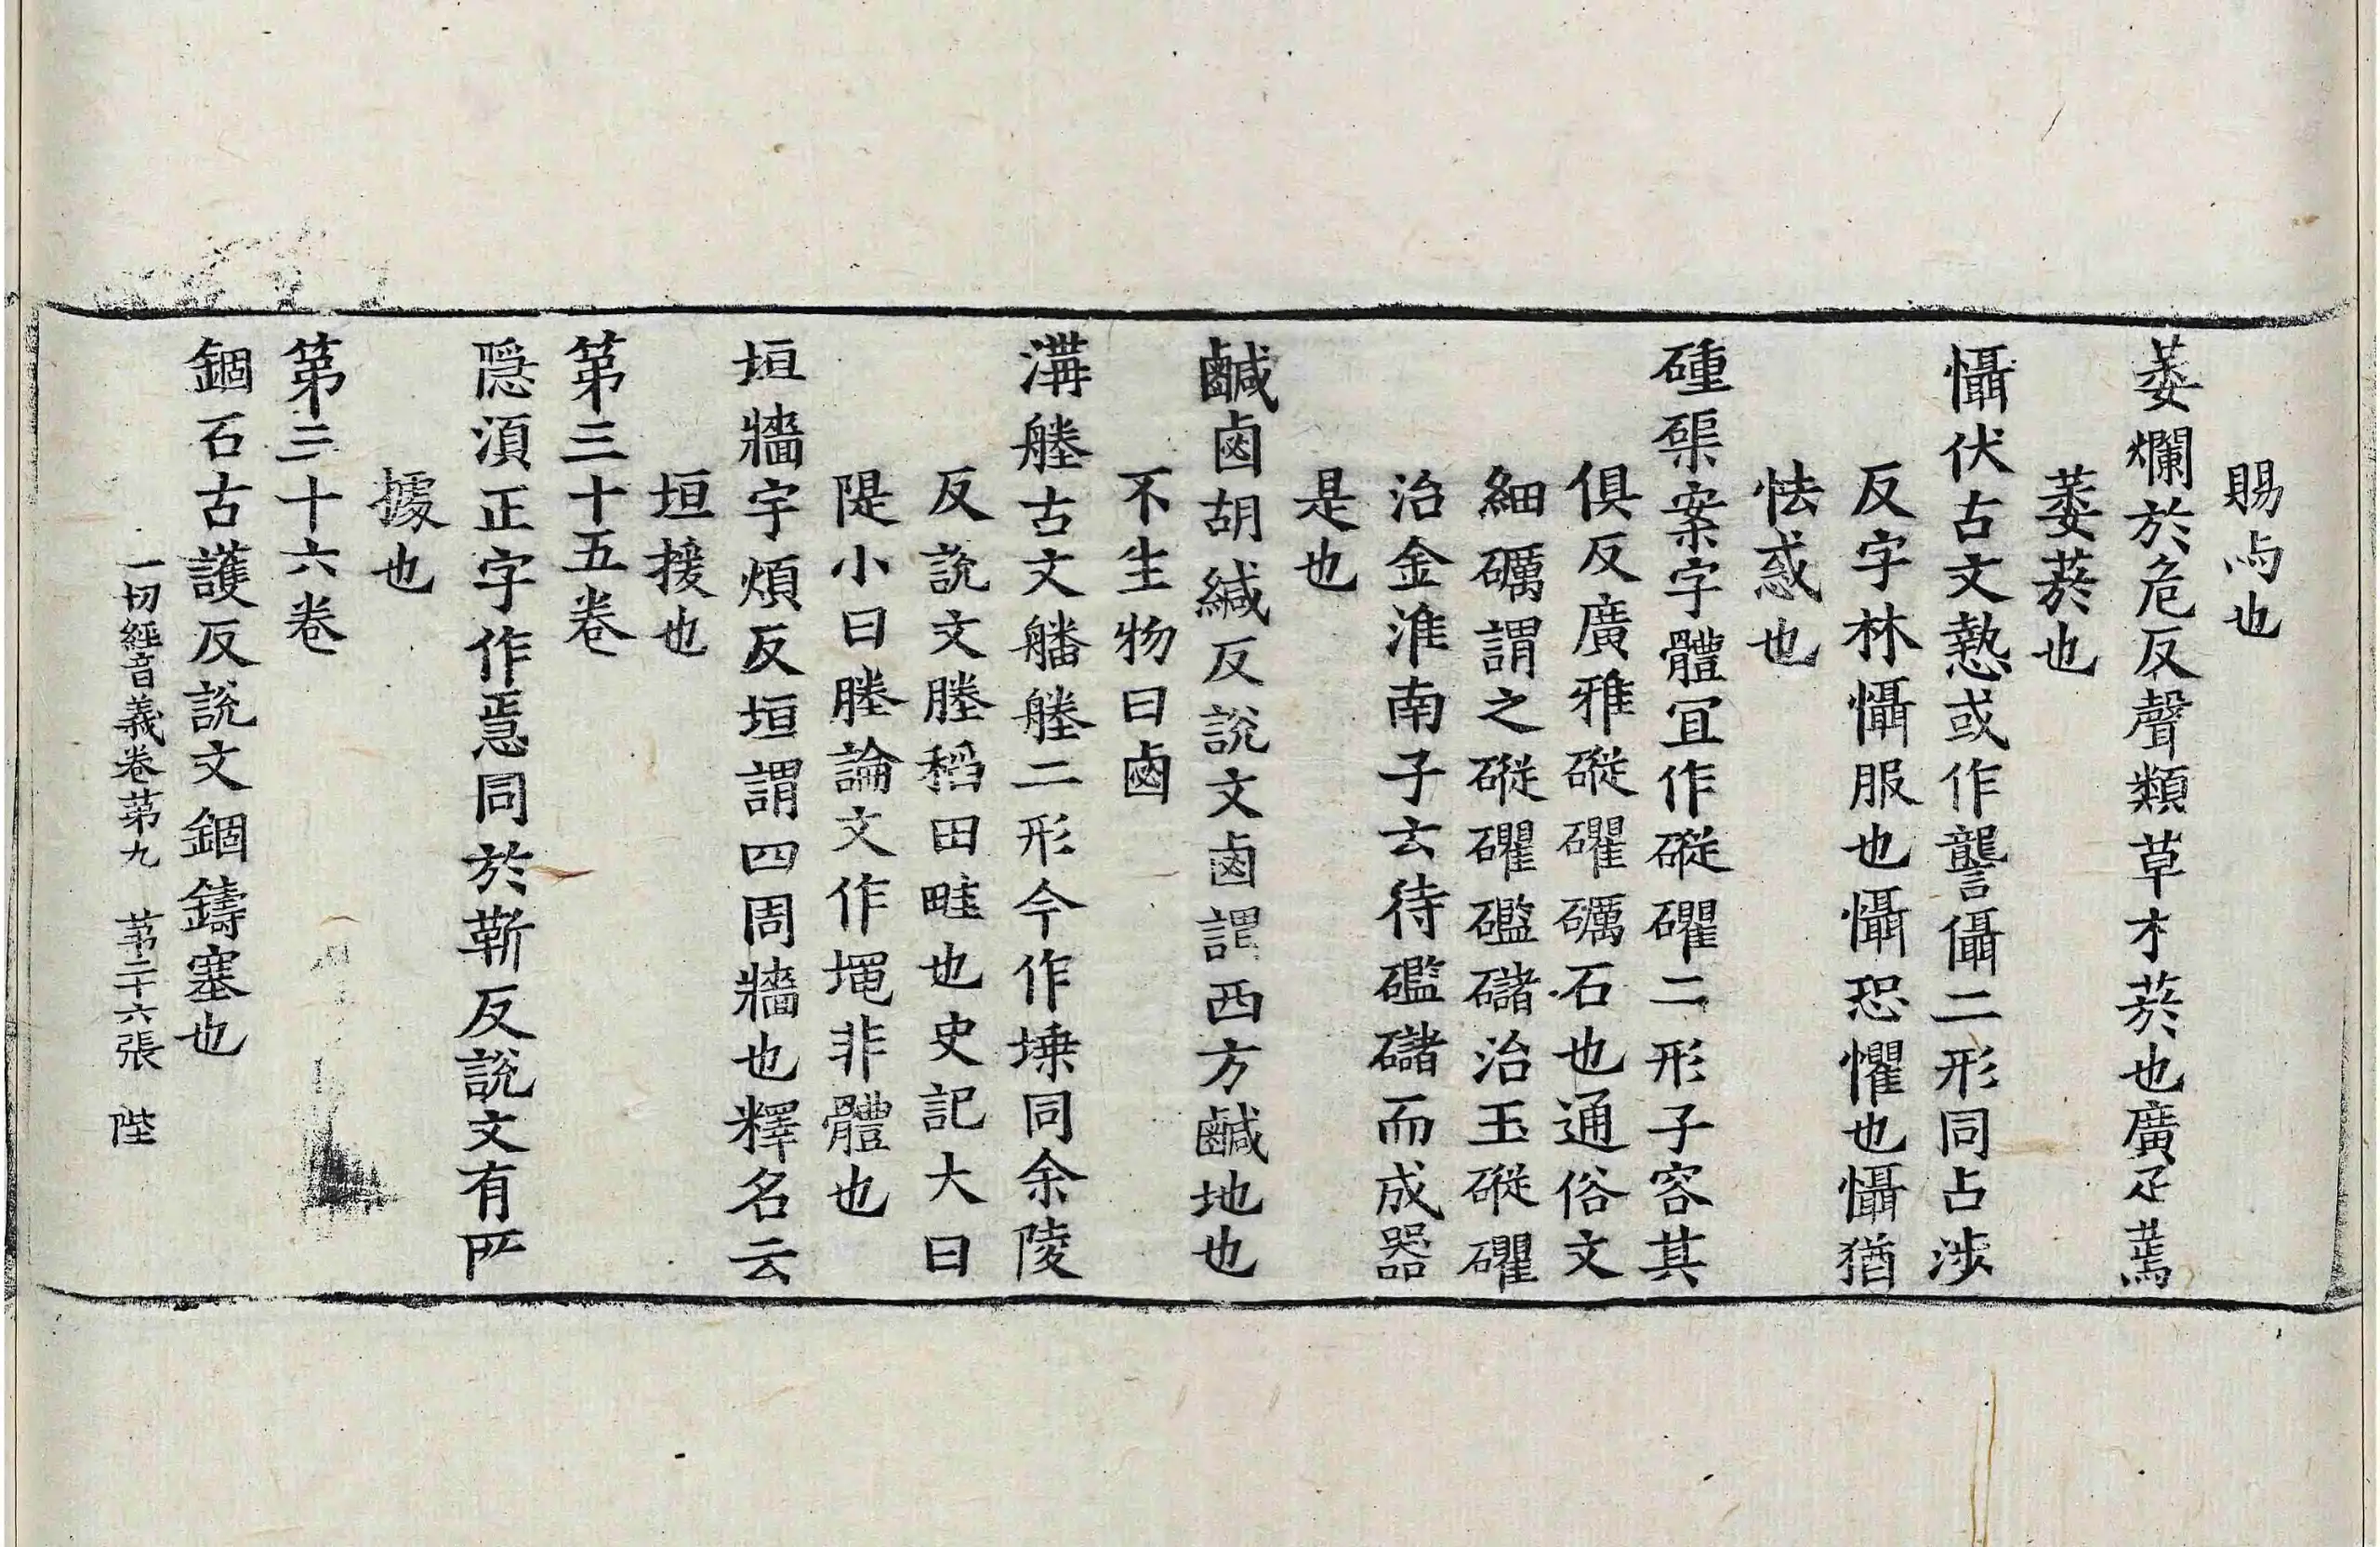 賜与也
萎爛於危反聲類草木菸也廣疋蔫
萎菸也
懾伏古文慹或作讋儑二形同占涉
反字林懾服也懾恐懼也懾猶
怯惑也
磫磲案字體冝作磫礭二形子容其
俱反廣雅磫礭礪石也通俗文
細礪謂之磫礭礛䃴治玉磫礭
治金淮南子云待礛䃴而成器
是也
鹹鹵胡緘反說文鹵謂西方鹹地也
不生物曰鹵
溝塍古文𦪝塍二形今作堘同余陵
反說文塍稻田畦也史記大曰
隄小曰塍論文作塭非體也
垣牆宇煩反垣謂四周牆也釋名云
垣援也
第三十五卷
隱湏正字作㥯同於靳反說文有所
據也
第三十六卷
錮石古護反說文錮鑄塞也
一切經音義卷第九　第二十六張　陛